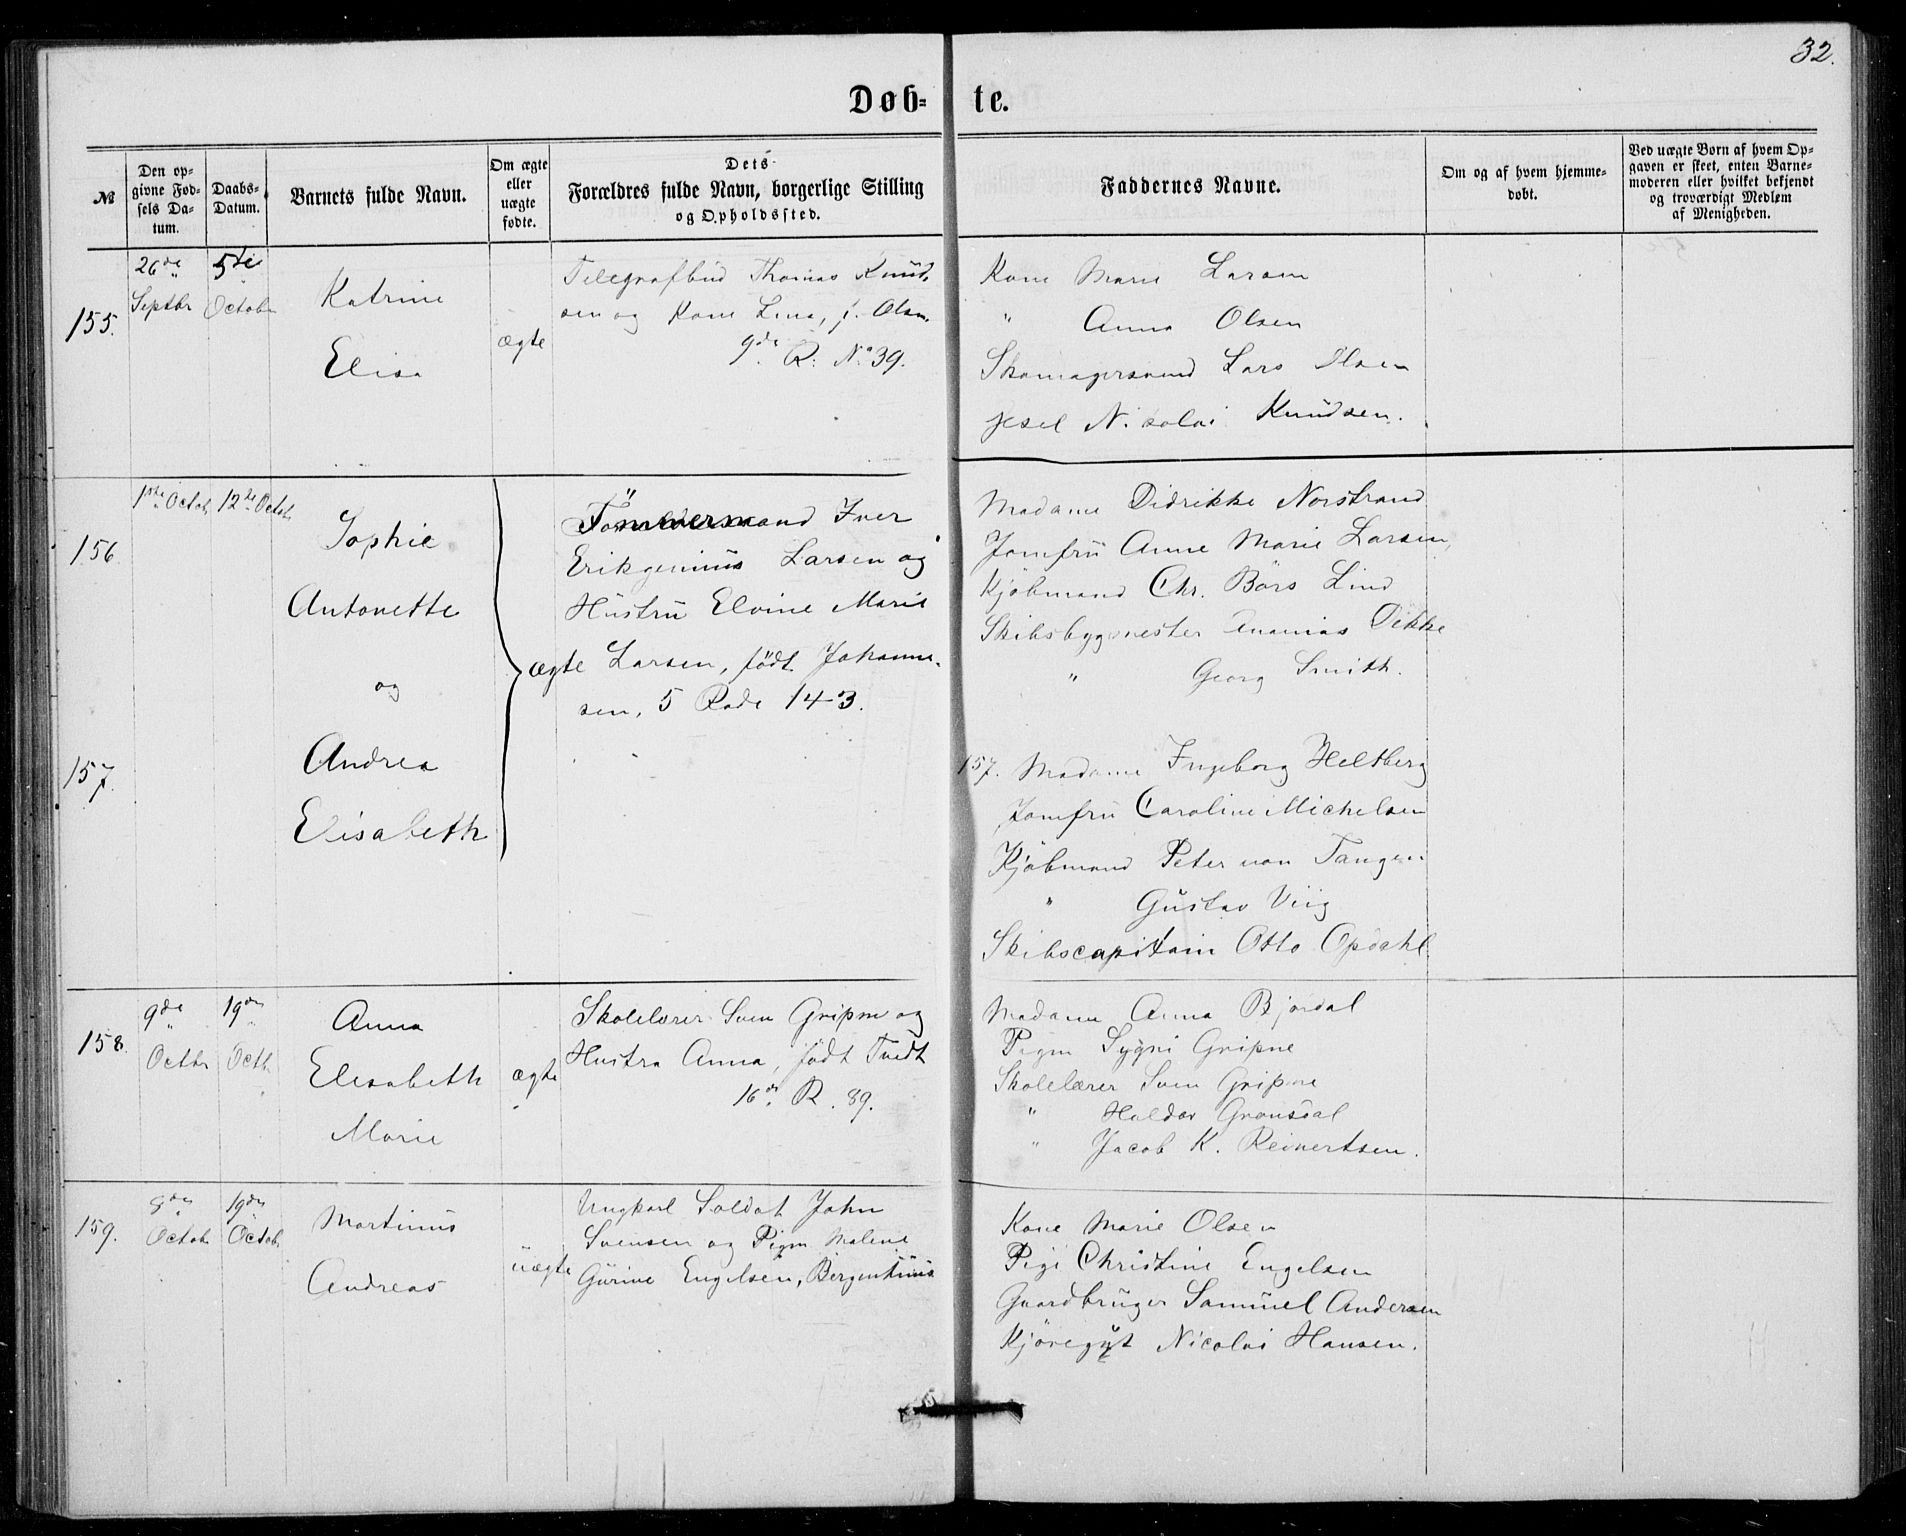 32.
Døb= te.
№
Den op-
givne Fød-
sels Da-
tum.
Daabs-
Datum.
Barnets fulde Navn.
Om ægte
eller
uægte
fødte.
Dets
Forældres fulde Navn, borgerlige Stilling
og Opholdssted.
Faddernes Navne.
Om og af hvem hjemme-
døbt.
Ved uægte Børn af hvem Op-
gaven er skeet, enten Barne-
moderen eller hvilket bekjendt
og troværdigt Medlem
af Menigheden.
155.
26de
Septbr
5te
Octobr
Katrine
Elisa
ægte
Telegrafbud Thomas Knud-
sen og Kone Lina, f. Olsen.
9de R. No 39.
Kone Marie Larsen
" Anna Olsen
Skomagersvend Lars Olsen
Nicolai Knudsen.
156
1ste Octob. 12te Octob.
Sophie
Antonette
og
157.
Andrea
Elisabeth
ægte
Tömmermand Iver
Larsen og
Hustru Elvine Marie
Larsen, født Johanne-
sen, 5 Rode 143.
Madame Didrikke Norstrand
Jomfru Anne Marie Larsen,
Kjöbmand Chr. Börs Lind
Skibsbygmester Ananias Dekke
" Georg Smith.
157. Madame Ingeborg Heltberg
Jomfru Caroline Michelsen
Kjöbmand Peter von Tangen
" Gustav Viig
Skibscapitain Otto Opdahl.
158.
9de
Octbr
19de
Octb.
Anna
Elisabeth
Marie
ægte
Skolelærer Sven Gripne og
Hustru Anna, født Tvedt
16de R. 89.
Madame Anna Bjordal
Pigen Sygni Gripne
Skolelærer Sven Gripne
" Haldor Gronsdal
" Jacob K. Reinertsen.
159.
8de
Octob.
19de
Octob.
Martinus
Andreas
uægte
Ungkarl Soldat John
Svensen og Pigen Malene
Gurine Engelsen,
Kone Marie Olsen
Pige Christine Engelsen
Gaardbruger Samuel Andersen
Nicolai Hansen.